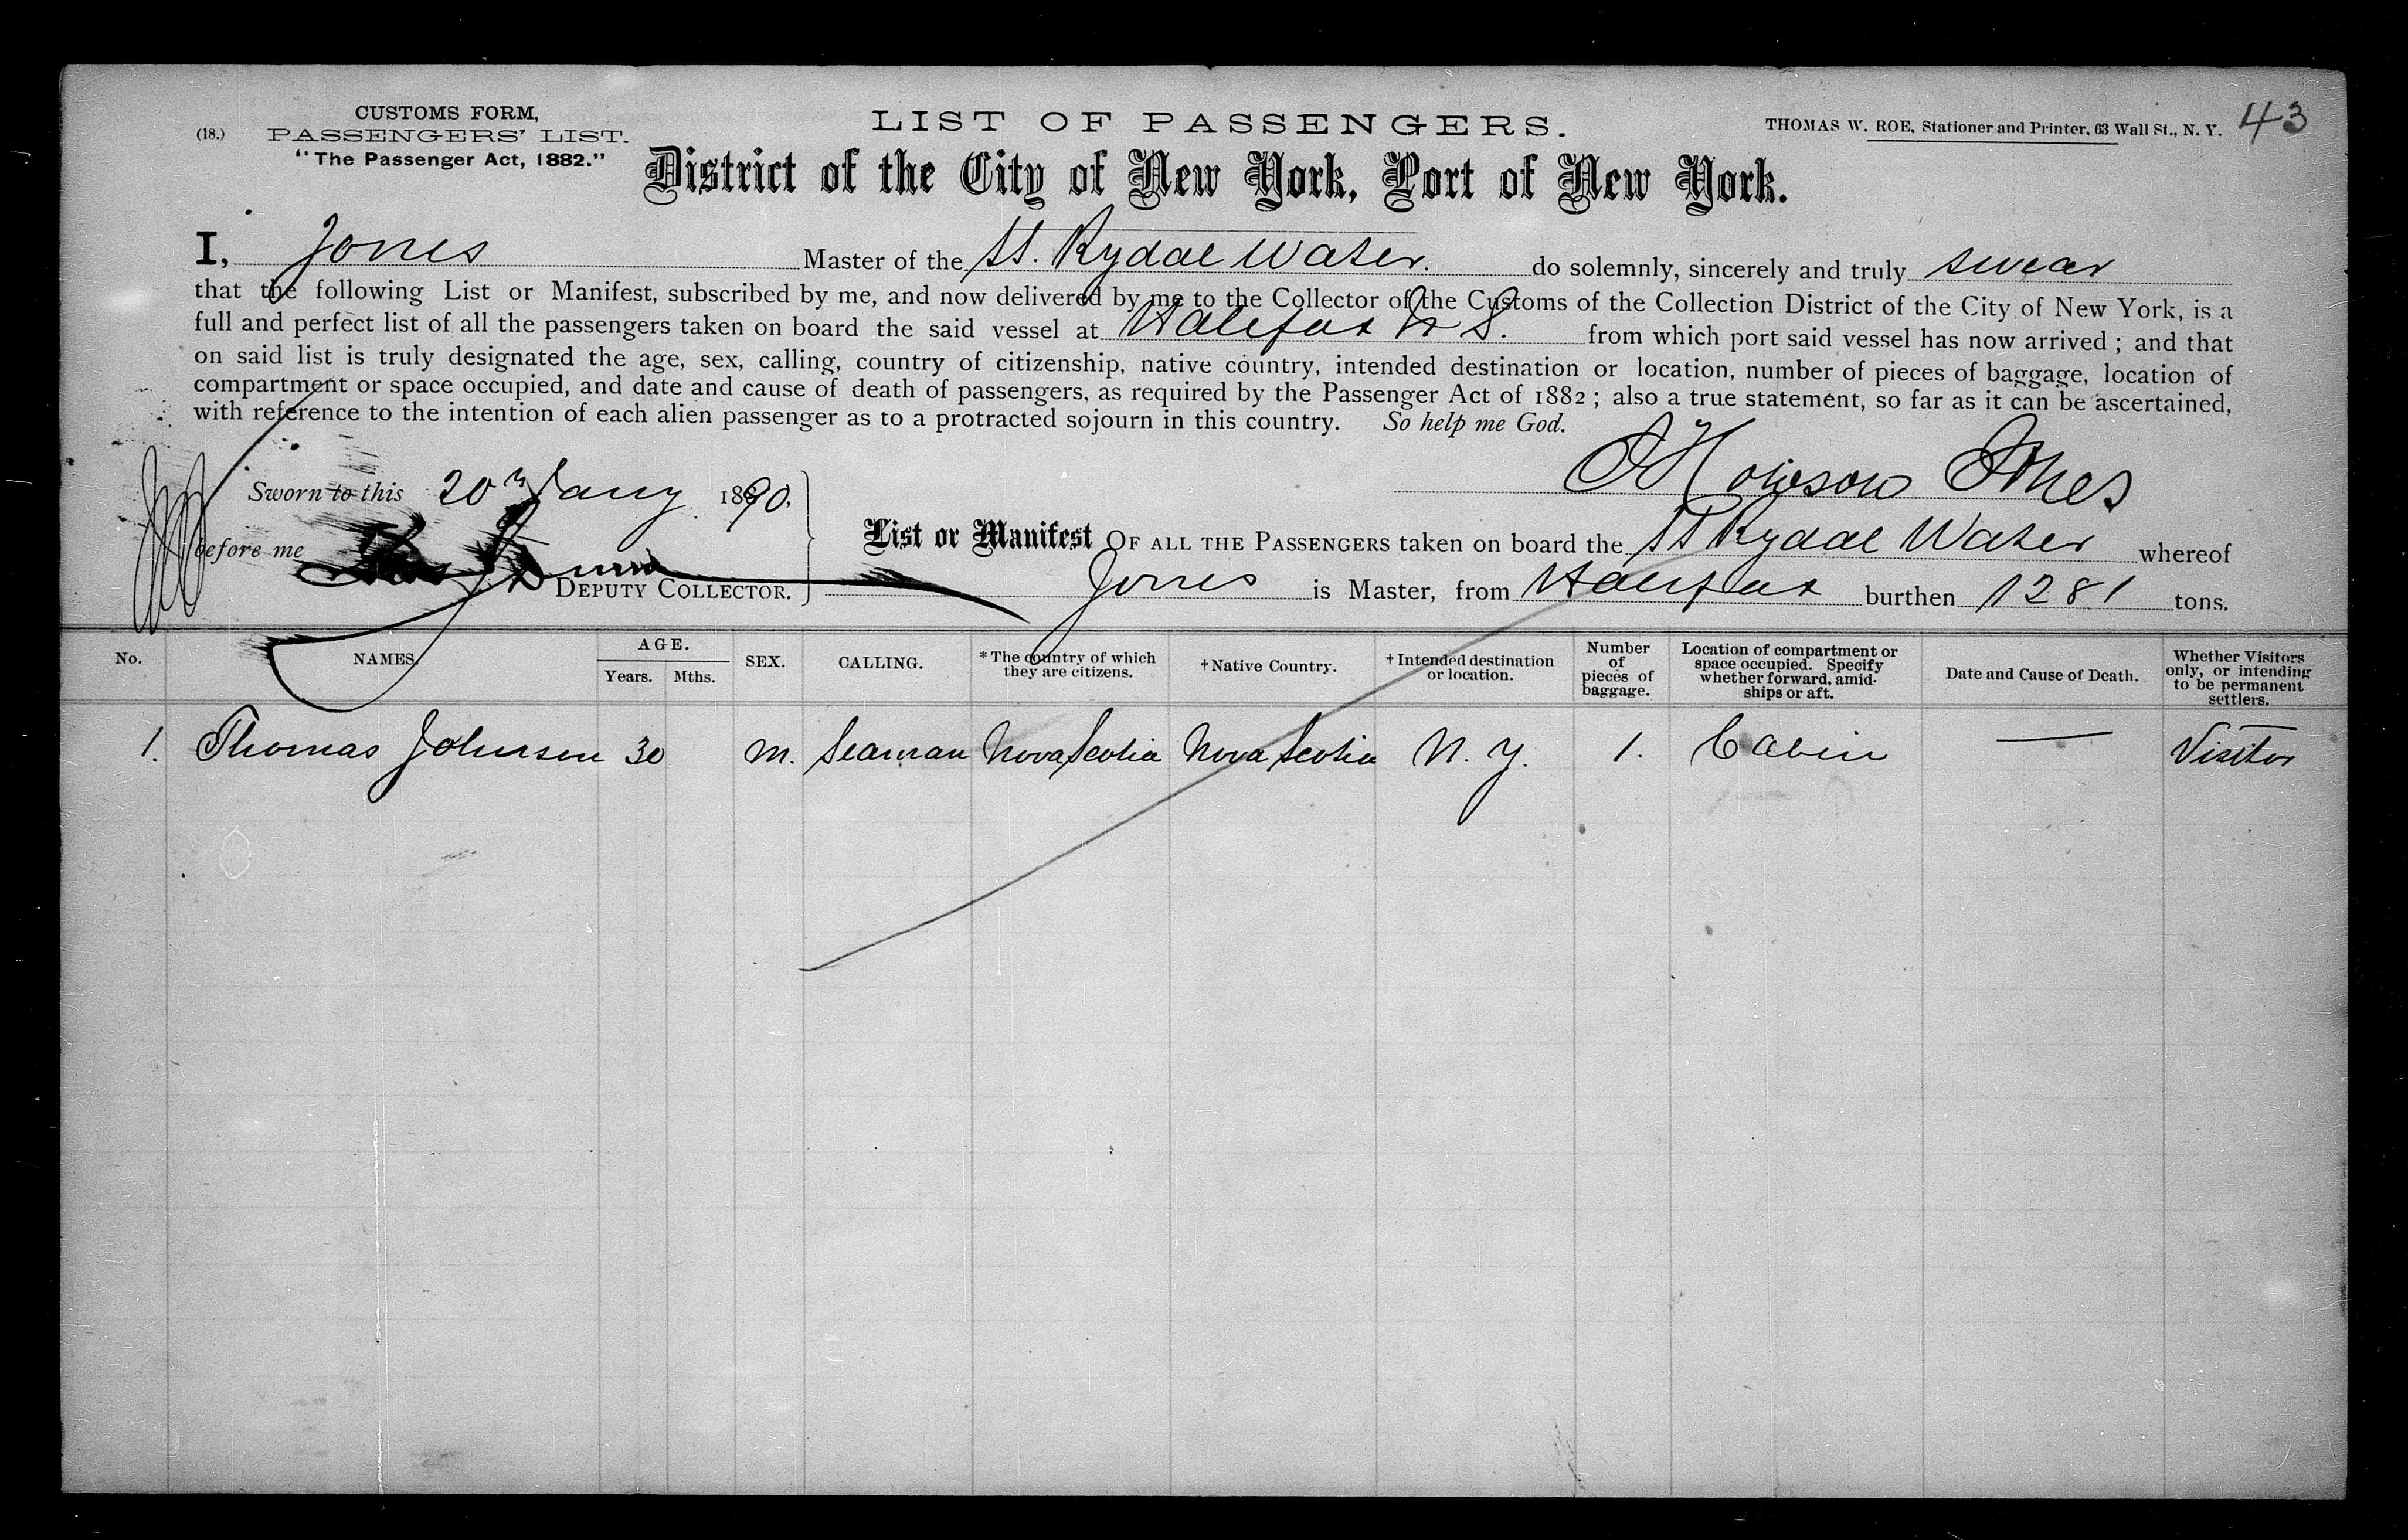 CUSTOMS FORM,
(18.) PASSENGERS' LIST.
"The Passenger Act, 1882."
LIST OF PASSENGERS.
THOMAS W. ROE, Stationer and Printer, 63 Wall St., N. Y. 43
District of the City of New York, Port of New York.
I, Jones Master of the SS. Rydal Water. do solemnly, sincerely and truly swear
that the following List or Manifest, subscribed by me, and now delivered by me to the Collector of the Customs of the Collection District of the City of New York, is a
full and perfect list of all the passengers taken on board the said vessel at Halifax N S. from which port said vessel has now arrived ; and that
on said list is truly designated the age, sex, calling, country of citizenship, native country, intended destination or location, number of pieces of baggage, location of
compartment or space occupied, and date and cause of death of passengers, as required by the Passenger Act of 1882 ; also a true statement, so far as it can be ascertained,
with reference to the intention of each alien passenger as to a protracted sojourn in this country. So help me God.
Sworn to this 20th Jany 1890.
Jones
before me
DEPUTY COLLECTOR.
List or Manifest OF ALL THE PASSENGERS taken on board the SS Rydal Water whereof
Jones is Master, from Halifax burthen 1281 tons.
No. NAMES. AGE. Years. Mths. SEX. CALLING. *The country of which they are citizens. †Native Country. †Intended destination or location. Number of pieces of baggage. Location of compartment or space occupied. Specify whether forward, amidships or aft. Date and Cause of Death. Whether Visitors only, or intending to be permanent settlers.
1. Thomas Johnson 30 M. Seaman Nova Scotia Nova Scotia N. Y. 1. Cabin — Visitor